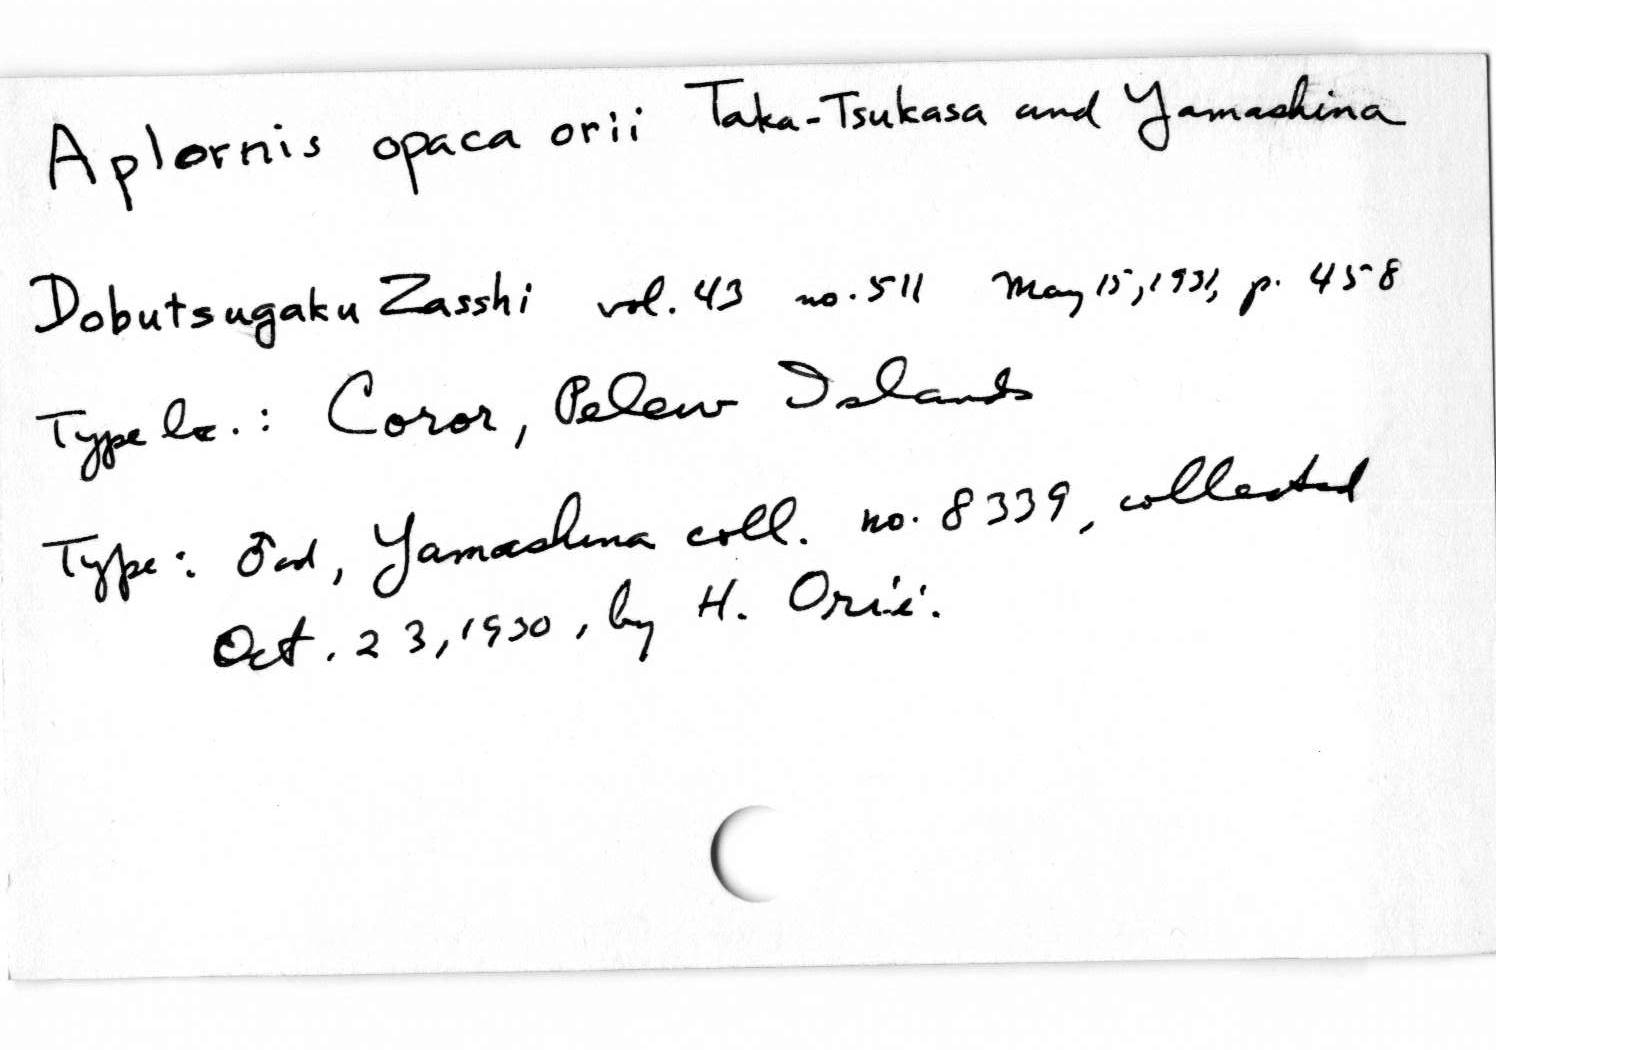 Aplornis opaca orii Taka-Tsukasa and Yamashina
Dobutsugaku Zasshi vol. 43 no. 511 May 15, 1931, p. 458
Type loc.: Coror, Pelew Islands
Type: ♂ ad, Yamashina coll. no. 8339, collected
Oct. 23, 1930, by H. Orii.